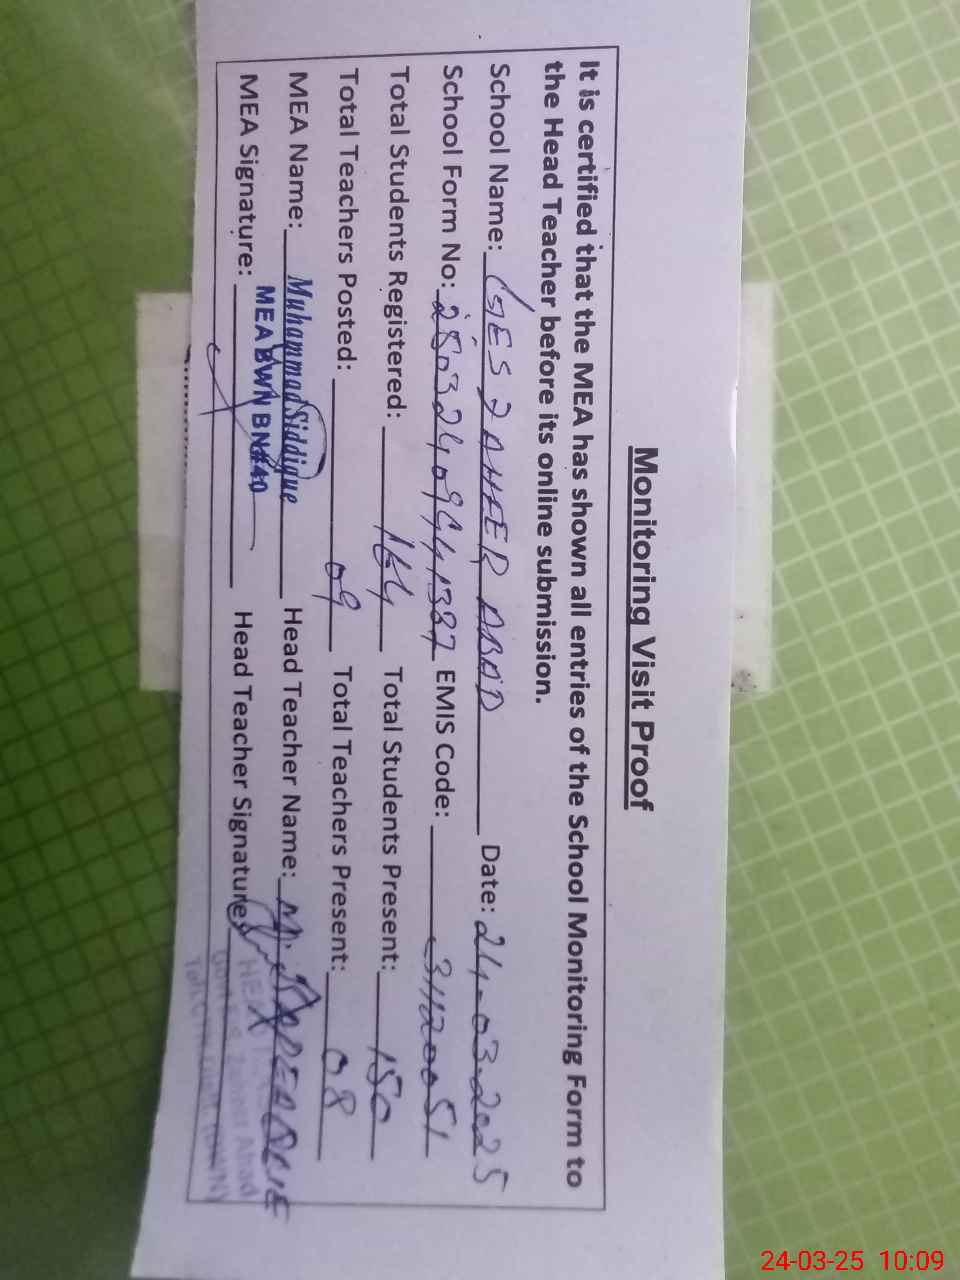 Monitoring Visit Proof
It is certified that the MEA has shown all entries of the School Monitoring Form to
the Head Teacher before its online submission.
School Name: GES ZAHEER ABAD Date: 24-03-2025
School Form No: EMIS Code: 31120051
Total Students Registered: 164 Total Students Present: 150
Total Teachers Posted: 09 Total Teachers Present: 08
MEA Name: Muhammad Siddique Head Teacher Name: M.
MEA Signature: MEA BWN BN#40 Head Teacher Signature:
Zaheer Abad
24-03-25 10:09